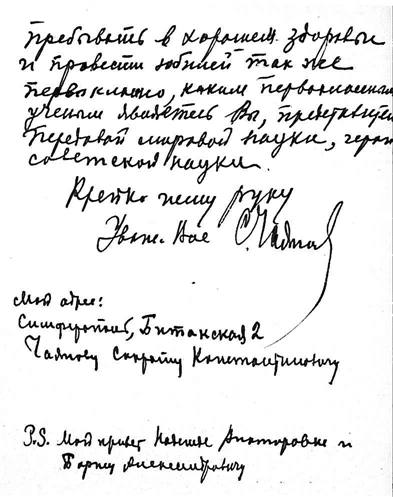 пребывать в хорошем здоровьи
и провести юбилей так же
первоклассно, каким первоклассным
ученым являетесь Вы, представитель
передовой мировой науки, герой
советской науки.
Крепко жму руку
Уваж. Вас
Мой адрес:
Симферополь, Битакская 2
Константиновичу
P.S. Мой привет Надежде Викторовне и
Борису Александровичу